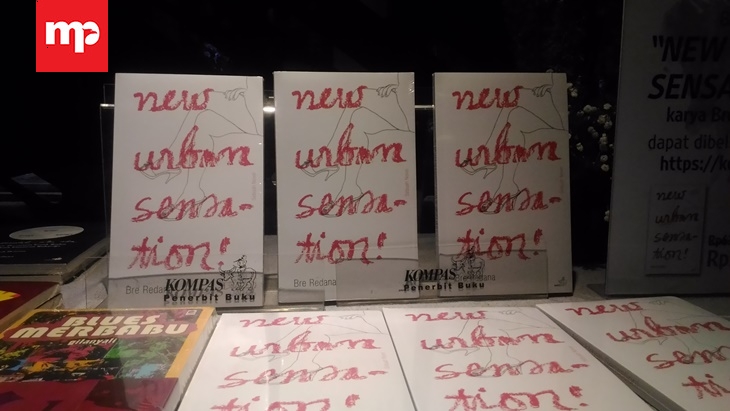 mp
new
urban
sensa-
tion!
Bre Redana
KOMPAS
Penerbit Buku
new
urban
sensa-
tion!
Bre Redana
new
urban
sensa-
tion!
Bre Redana
KOMPAS
Penerbit Buku
"NEW
SENSA
karya Br
dapat dibel
https://k
new
urban
sensa-
tion!
Rp
BLUES
MERBABU
Gitanyali
new
urban
sensa-
tion!
new
urban
sensa-
tion!
new
urban
sensa-
tion!